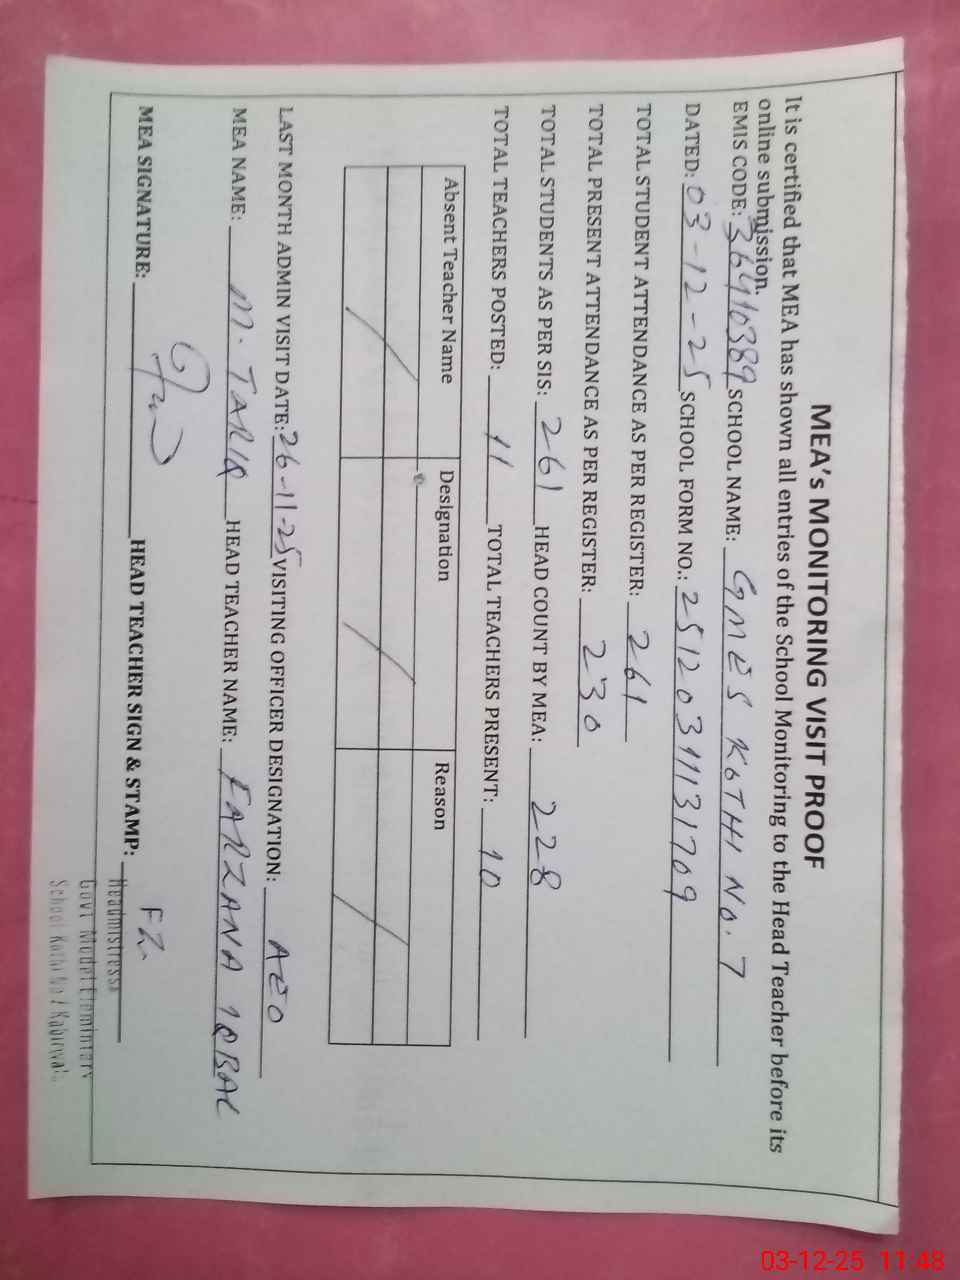 MEA's MONITORING VISIT PROOF
It is certified that MEA has shown all entries of the School Monitoring to the Head Teacher before its
online submission.
EMIS CODE: 36410389 SCHOOL NAME: GMES KOTHI NO. 7
DATED: 03-12-25 SCHOOL FORM NO.: 25120311131709
TOTAL STUDENT ATTENDANCE AS PER REGISTER: 261
TOTAL PRESENT ATTENDANCE AS PER REGISTER: 230
TOTAL STUDENTS AS PER SIS: 261 HEAD COUNT BY MEA: 228
TOTAL TEACHERS POSTED: 11 TOTAL TEACHERS PRESENT: 10
Absent Teacher Name Designation Reason
LAST MONTH ADMIN VISIT DATE: 26-11-25 VISITING OFFICER DESIGNATION: AEO
MEA NAME: M. TARIQ HEAD TEACHER NAME: FARZANA IQBAL
MEA SIGNATURE: HEAD TEACHER SIGN & STAMP: FZ
Headmistress
Govt Model Elementary
School Kothi No 7 Kabirwala
03-12-25 11:48